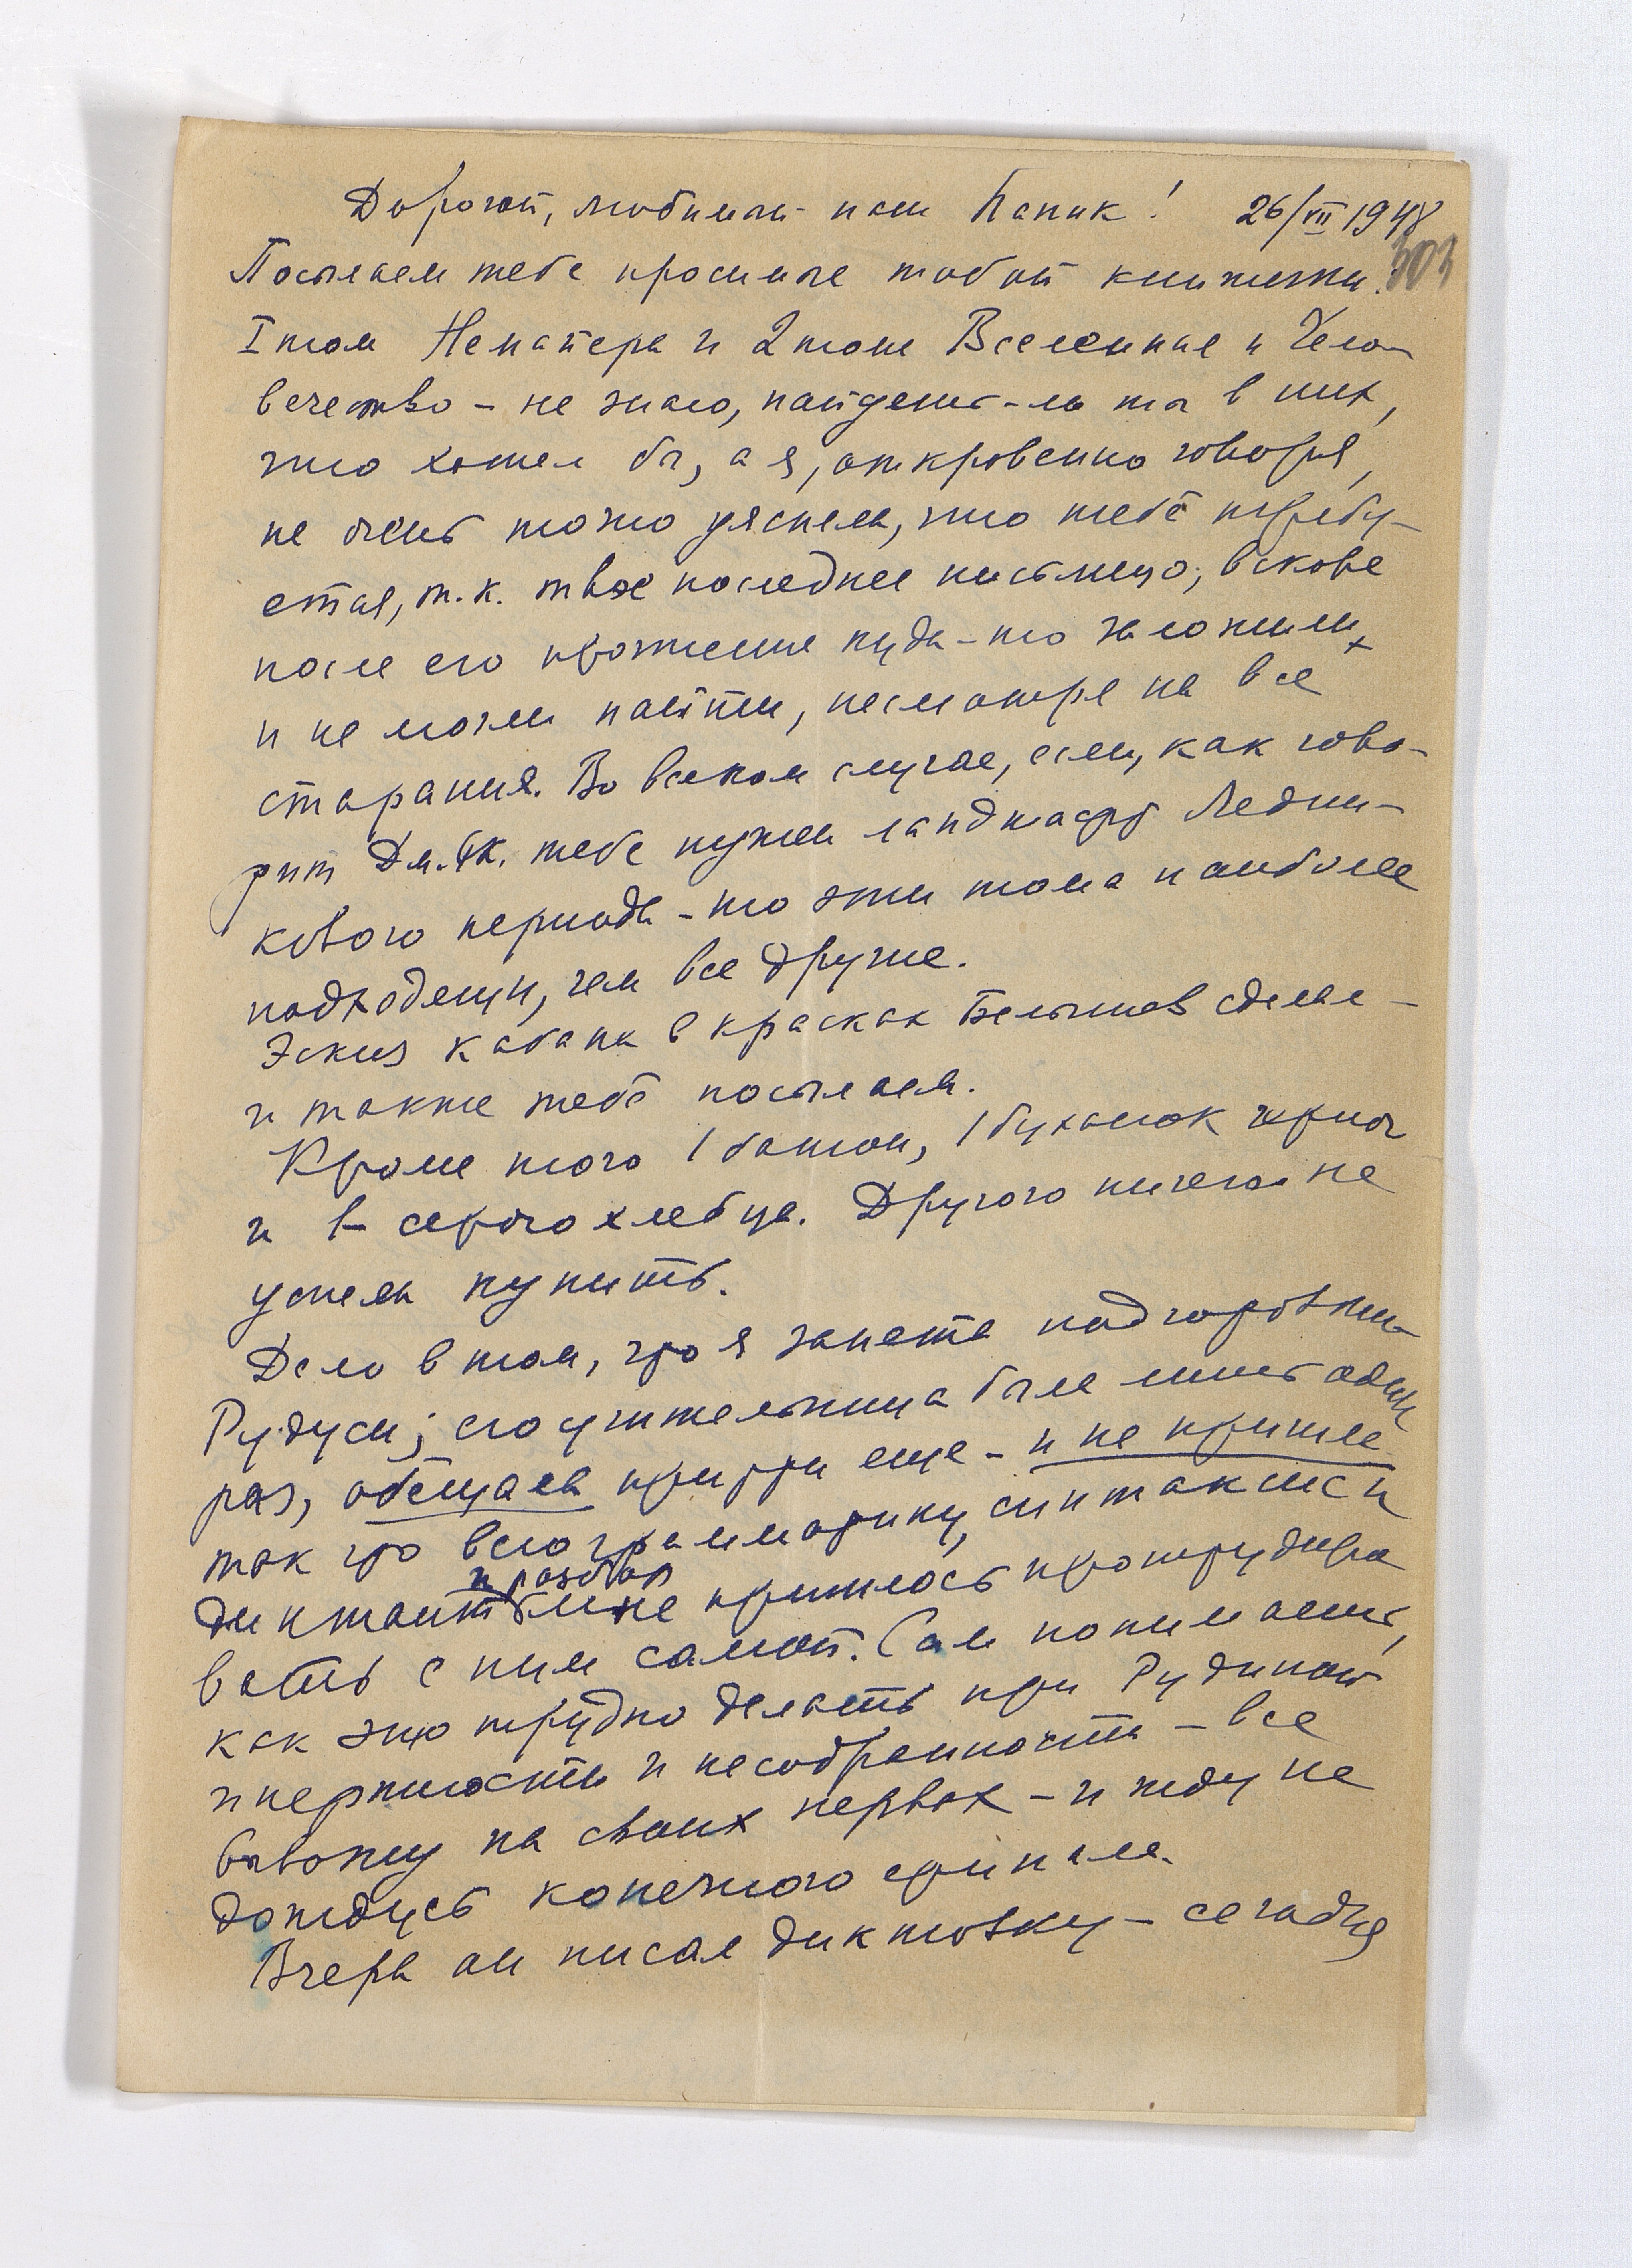 Дорогой, любимый наш Папик! 26/VII 1948
303
Посылаем тебе просимые тобой книжки:
I том Неймайера и 2 тома Вселенная и Чело-
вечество – не знаю, найдешь-ль ты в них,
что хотел бы, а я, откровенно говоря,
не очень точно уяснила, что тебе требу-
ется, т.к. твое последнее письмецо, вскоре
после его прочтения куда-то заложили
и не могли найти, несмотря на все
старания. Во всяком случае, если, как гово-
рит Дм. тебе нужен ландшафт Ледни-
кового периода – то эти тома наиболее
подходящи, чем все другие.
Эскиз кабана в красках Белышев сделал –
и также тебе посылаем.
Кроме того 1 батон, 1 буханок черного
и серого хлебца. Другого ничего не
успела купить.
Дело в том, что я занята подготовкой
Рудуси; его учительница была лишь один
раз, обещала придти еще – и не пришла
так что всю грамматику, синтаксис и
и разбор
диктанты мне пришлось проштудиро
вать с ним самой. Сам понимаешь,
как это трудно делать при Рудиной
инертности и несобранности – все
вывожу на своих нервах – и жду не
дождусь конечного финала.
Вчера он писал диктовку – сегодня